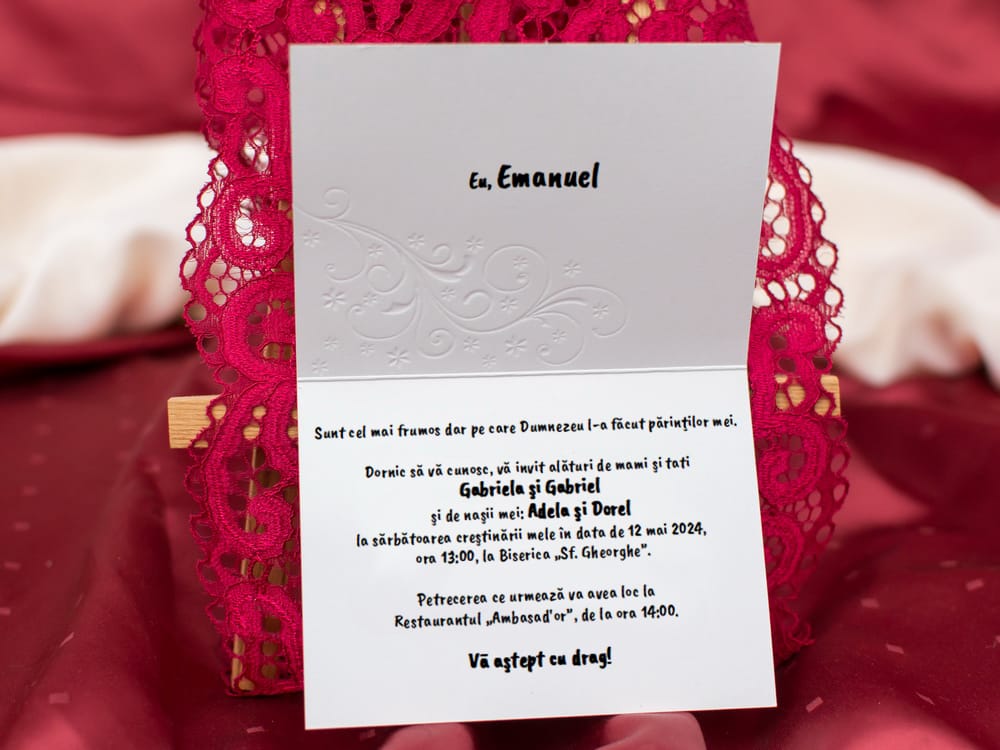 Eu, Emanuel
Sunt cel mai frumos dar pe care Dumnezeu l-a făcut părinților mei.
Dornic să vă cunosc, vă invit alături de mami și tati
Gabriela și Gabriel
și de nașii mei: Adela și Dorel
la sărbătoarea creștinării mele în data de 12 mai 2024,
ora 13:00, la Biserica „Sf. Gheorghe”.
Petrecerea ce urmează va avea loc la
Restaurantul „Ambasad'or”, de la ora 14:00.
Vă aștept cu drag!